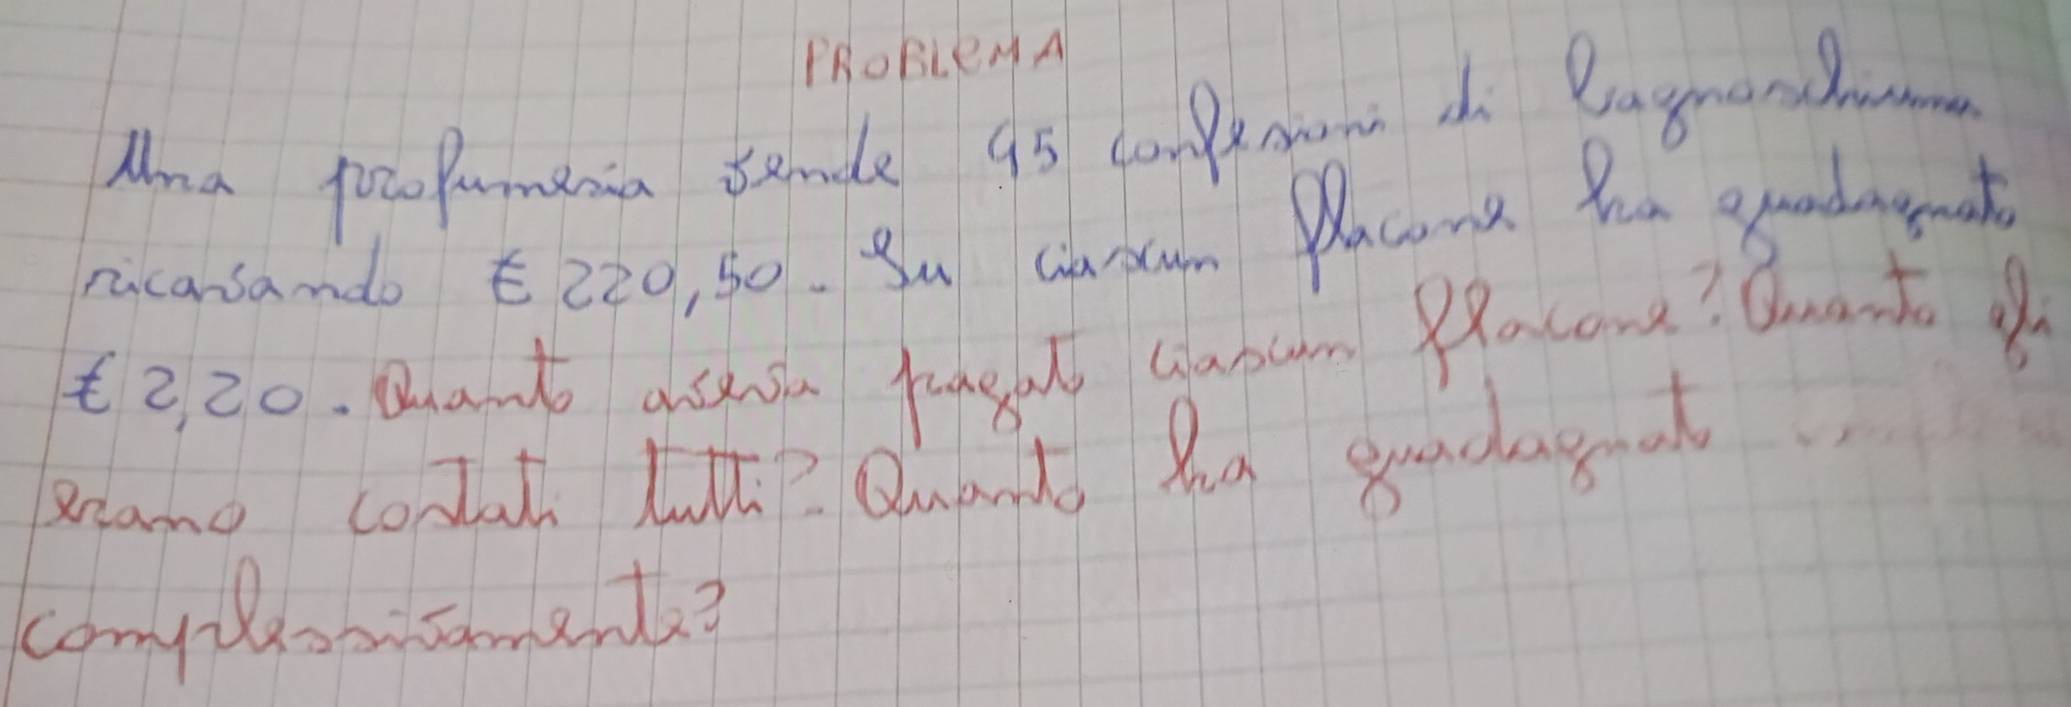 PROBLEMA
Una profumeria vende 45 confezioni di bagnoschiuma
ricavando € 220,50. Su ciascun flacone ha guadagnato
€ 2,20. Quanto aveva pagato ciascun flacone? Quanto gli
erano costati tutti? Quanto ha guadagnato
complessivamente?